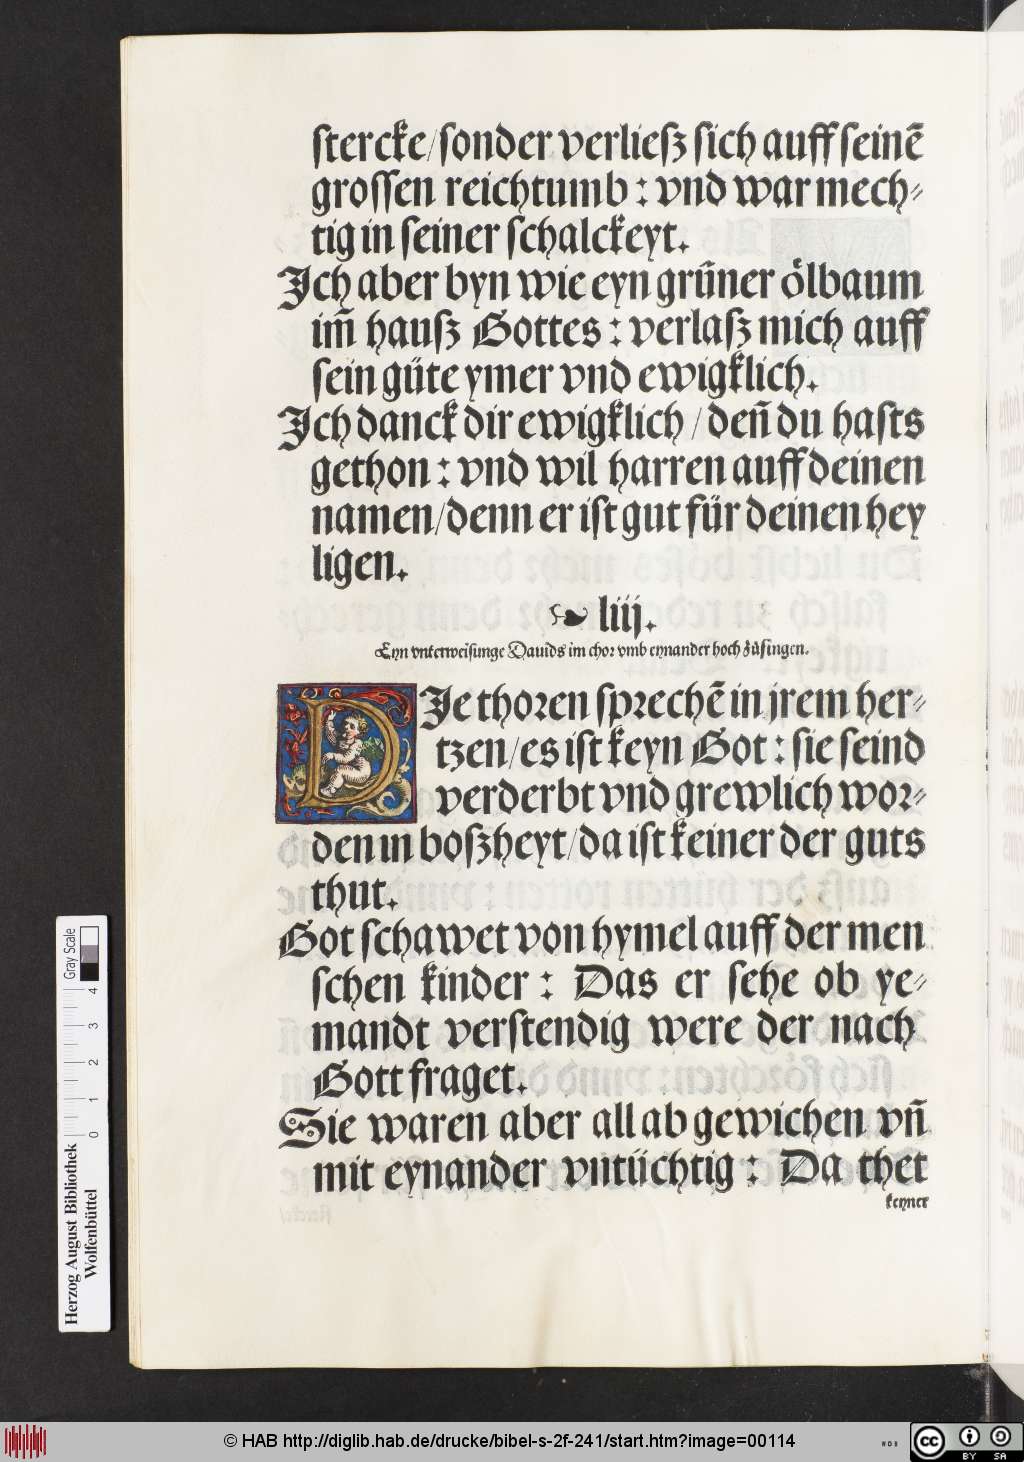 stercke/sonder verliesz sich auff seinē
grossen reichtumb : vnd war mech⸗
tig in seiner schalckeyt.
Ich aber byn wie eyn grűner ölbaum
im̃ hausz Gottes : verlasz mich auff
sein güte ymer vnd ewigklich.
Ich danck dir ewigklich / deñ du hasts
gethon : vnd wil harren auff deinen
namen/denn er ist gut für deinen hey
ligen.
❧ liij.
Eyn vnterweisunge Dauids im chor vmb eynander hoch zůsingen.
DIe thoren sprechē in jrem her⸗
tzen/es ist keyn Got : sie seind
verderbt vnd grewlich wor⸗
den in boszheyt/da ist keiner der guts
thut.
Got schawet von hymel auff der men
schen kinder : Das er sehe ob ye⸗
mandt verstendig were der nach
Gott fraget.
Sie waren aber all ab gewichen vñ
mit eynander vntüchtig : Da thet
keyner
Herzog August Bibliothek
Wolfenbüttel
0 1 2 3 4
Gray Scale
© HAB http://diglib.hab.de/drucke/bibel-s-2f-241/start.htm?image=00114
WDB
cc BY SA